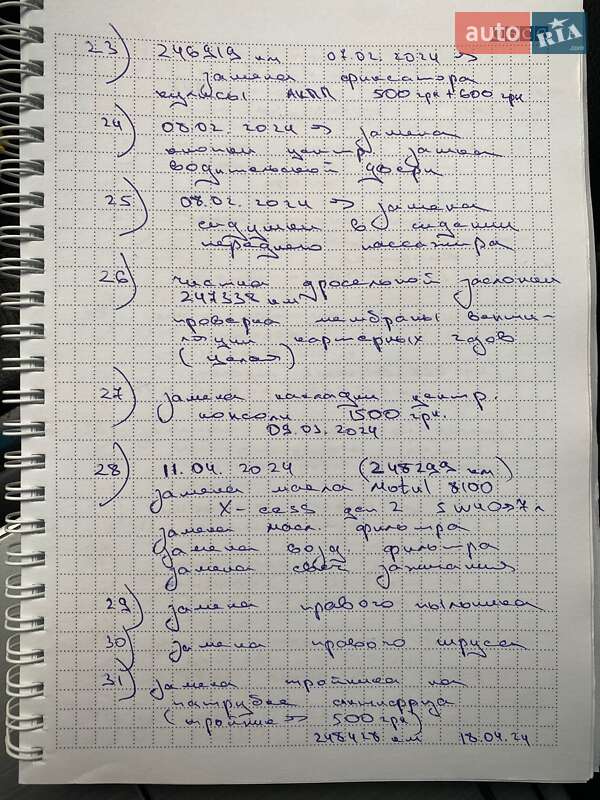 auto RIA .com
23) 246919 км 07.02.2024 →
замена фиксатора
кулисы АКПП 500 грн + 600 грн
24) 08.02.2024 → замена
кнопки центр замка
водительской двери
25) 08.02.2024 → замена
сидушки в сидении
переднего пассажира
26) чистка дросельной заслонки
247338 км
проверка мембраны венти-
ляции картерных газов
(целая)
27) замена накладки центр.
консоли 1500 грн.
09.03.2024
28) 11.04.2024 (248299 км)
замена масла Motul 8100
X-cess gen 2 5W40 → 7л
замена масл фильтра
замена возд. фильтра
замена свеч зажигания
29) замена правого пыльника
30) замена правого шруса
31) замена тройника на
патрубке антифриза
(тройник → 500 грн)
248428 км 18.04.24